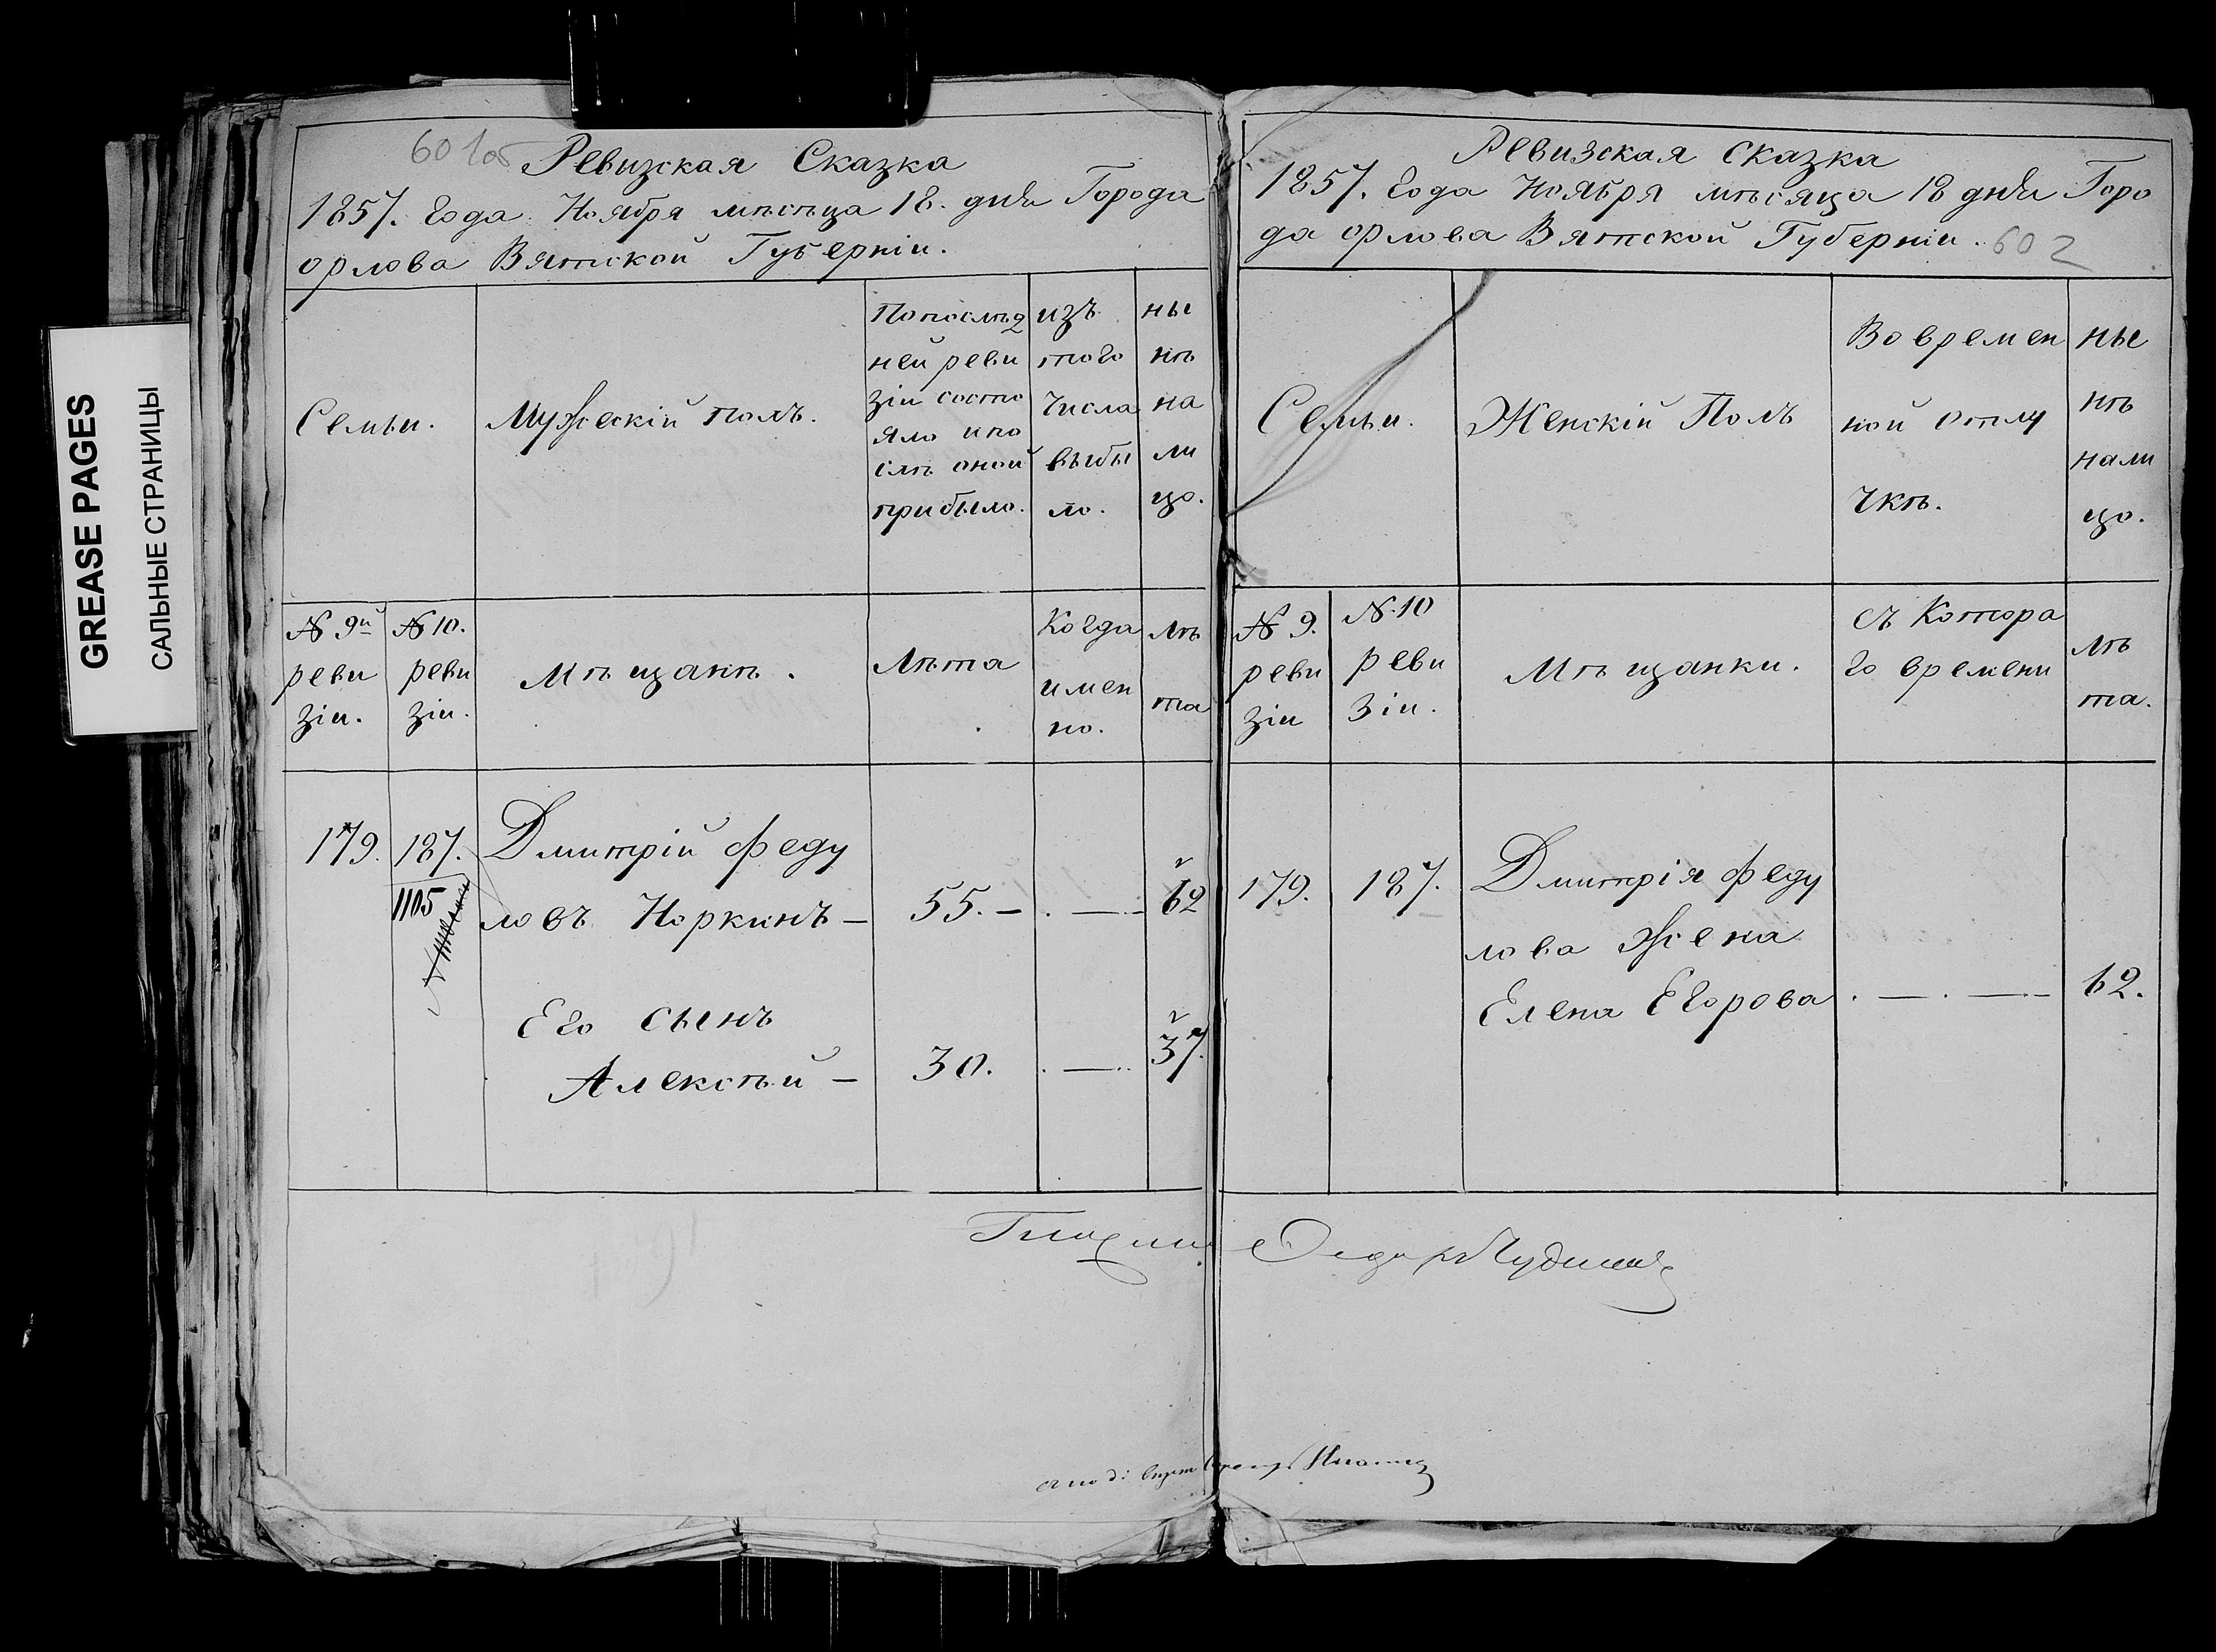 GREASE PAGES
САЛЬНЫЕ СТРАНИЦЫ
601об
Ревизская Сказка
1857. года Ноября мѣсеца 18. дня Города
орлова Вятской Губерніи.
Семьи.
Мужескій полъ.
Попослѣд
ней реви
зіи состо
яло и по
слѣ оной
прибыло.
изъ
того
числа
выбы
ло.
ны
нѣ
на
ли
цо.
№ 9й
реви
зіи.
№ 10.
реви
зіи.
Мѣщанѣ.
Лѣта
Когда
имен
но.
Лѣ
та
179. 187. Дмитрій Феду
1105
ловъ Норкинъ — 55. — . — 62
Его сынъ
Алексѣй — 30. . — . 37.
Ревизская сказка
1857. года Ноября мѣсяца 18 дня Горо
да орлова Вятской Губерніи. 602
Семьи.
Женскій Полъ
Во времен
ной отлу
чкѣ.
ны
нѣ
нали
цо.
№ 9.
реви
зіи
№ 10
реви
зіи.
Мѣщанки.
съ Котора
го времени
лѣ
та.
179. 187. Дмитрія Феду
лова жена
Елена Егорова . — . — 62.